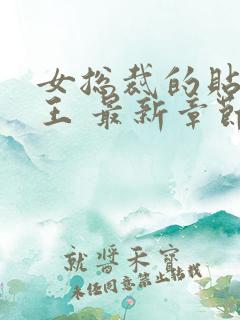 女总裁的贴
王 最新章节
就酱禾寳
未经同意禁止转载